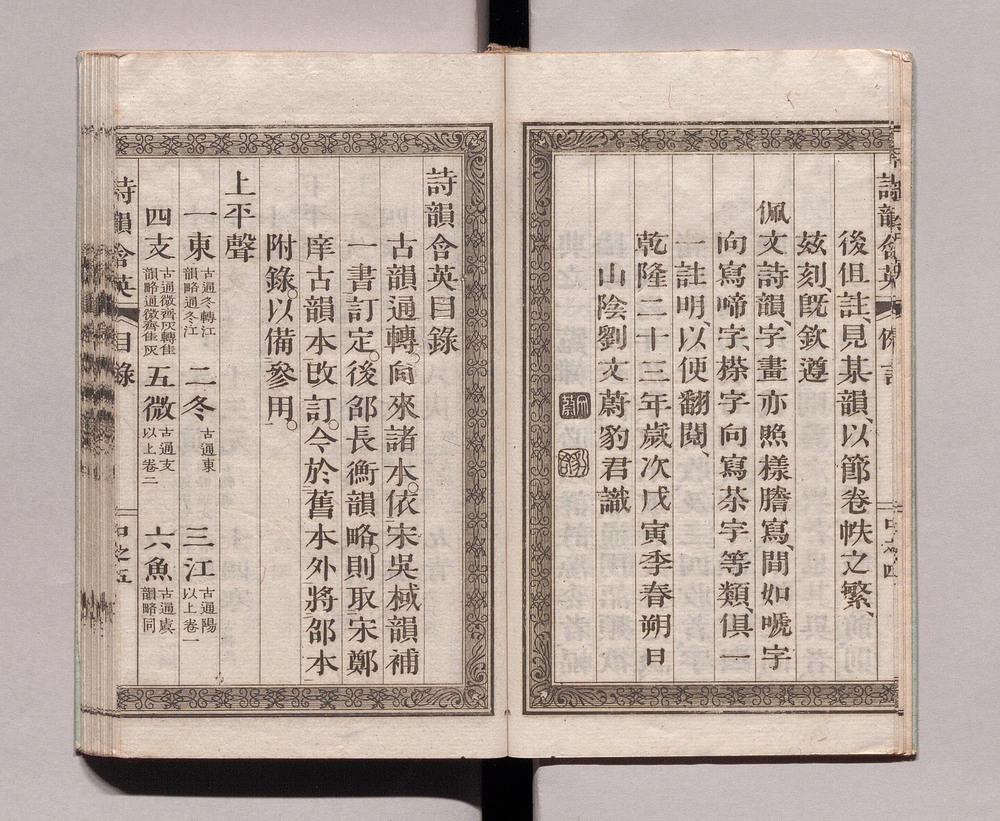 詩韻含英 言
後但註見某韻、以節卷帙之繁、
茲刻、旣欽遵
佩文詩韻、字畫亦照樣謄寫、間如嗁字
向寫啼字、搽字向寫茶字等類、俱一
一註明、以便翻閱、
乾隆二十三年歲次戊寅季春朔日
山陰劉文蔚豹君識
詩韻含英目錄
古韻通轉。向來諸本。依宋吳棫韻補
一書訂定。後邵長衡韻略。則取宋鄭
庠古韻本改訂。今於舊本外將邵本
附錄。以備參用。
上平聲
一東 古通冬轉江 韻略通冬江 二冬 古通東 三江 古通陽 以上卷一
四支 古通微齊灰轉佳 韻略通微齊佳灰 五微 古通支 以上卷二 六魚 古通虞 韻略同
詩韻含英 目錄 中之五